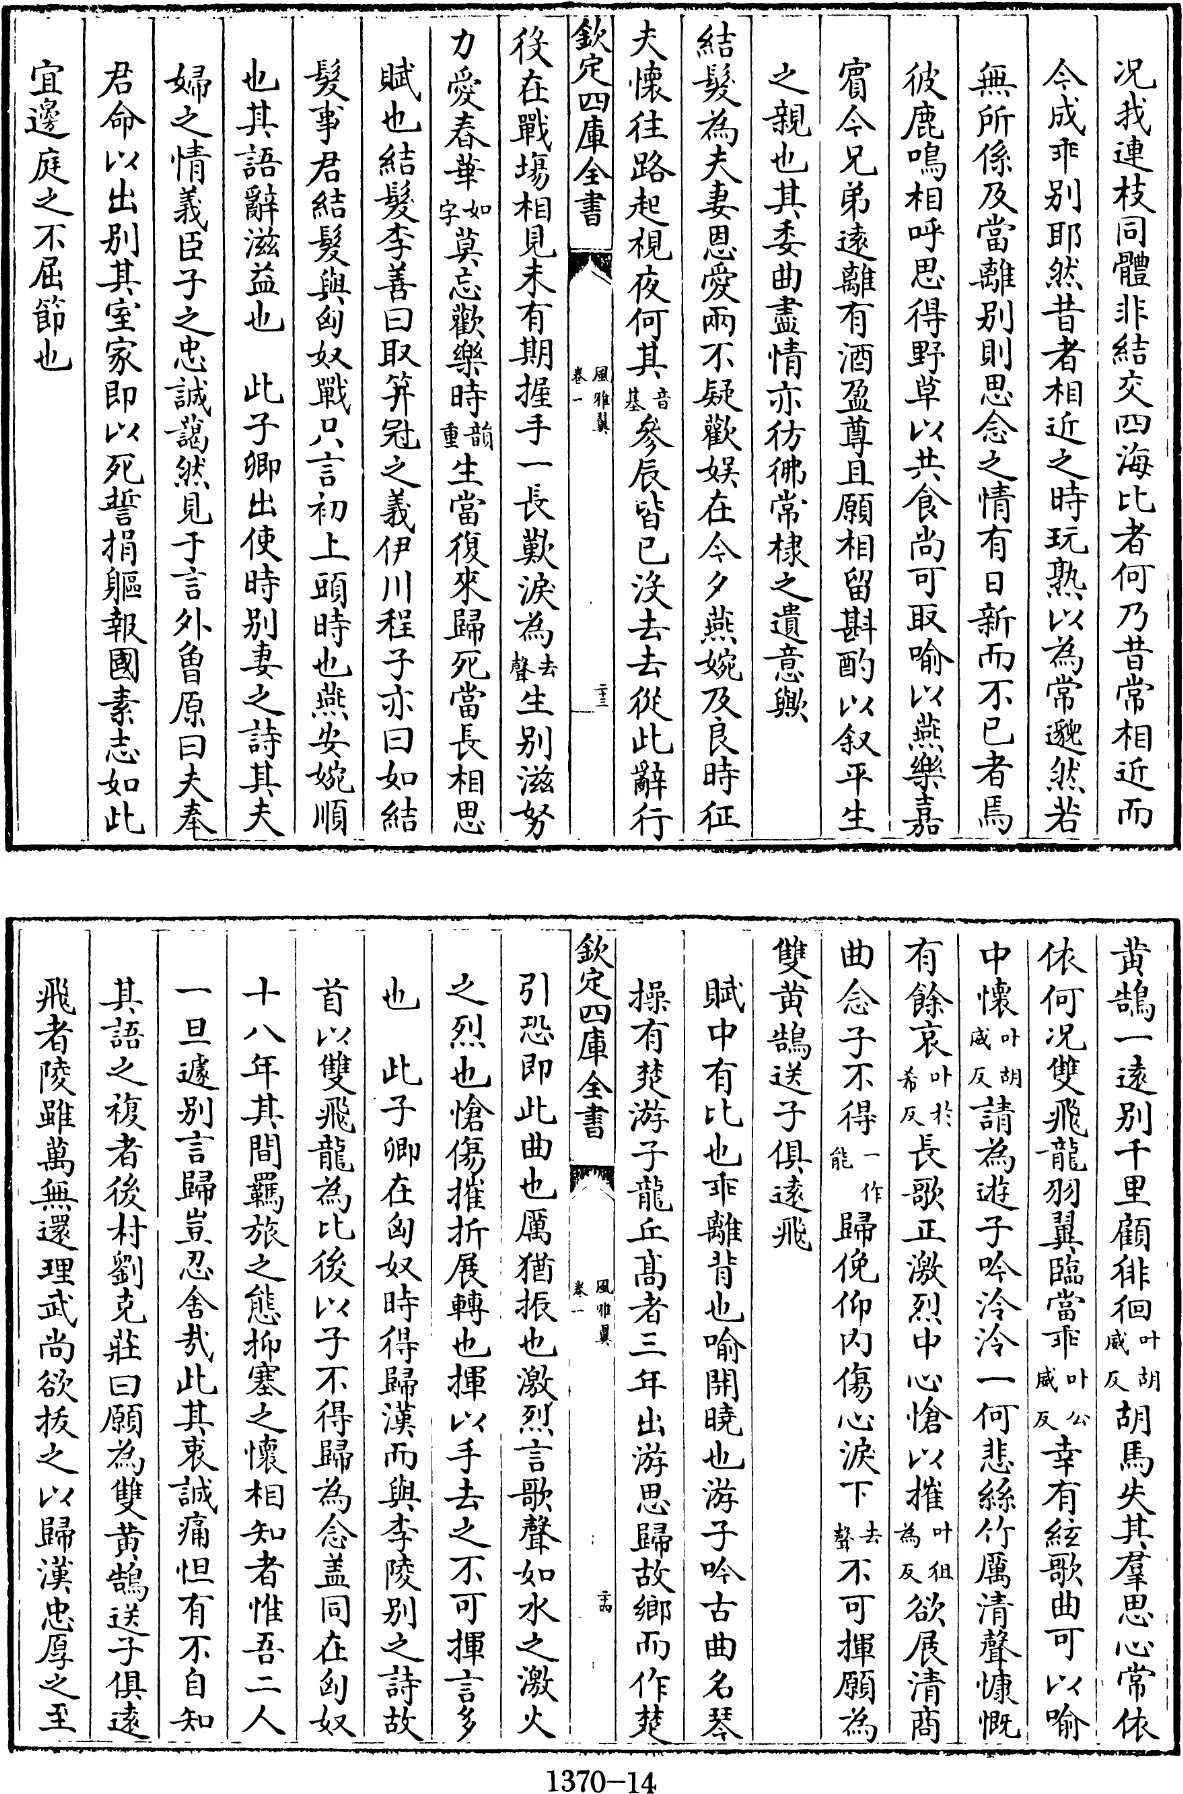 况我連枝同體非結交四海比者何乃昔常相近而
今成乖别耶然昔者相近之時玩熟以為常邈然若
無所係及當離别則思念之情有日新而不已者焉
彼鹿鳴相呼思得野草以共食尚可取喻以燕樂嘉
賓今兄弟逺離有酒盈尊且願相留斟酌以叙平生
之親也其委曲盡情亦彷彿常棣之遺意歟
結髮為夫妻恩愛兩不疑歡娯在今夕燕婉及良時征
夫懐往路起視夜何其音基參辰皆已没去去從此辭行
欽定四庫全書 風雅翼卷一 二三
役在戰塲相見未有期握手一長歎淚為去聲生别滋努
力愛春華如字莫忘歡樂時韻重生當復來歸死當長相思
賦也結髮李善曰取笄冠之義伊川程子亦曰如結
髮事君結髮與匈奴戰只言初上頭時也燕安婉順
也其語辭滋益也 此子卿出使時别妻之詩其夫
婦之情義臣子之忠誠藹然見于言外曾原曰夫奉
君命以出别其室家即以死誓捐軀報國素志如此
宜邊庭之不屈節也
黄鵠一逺别千里顧徘徊叶胡威反胡馬失其羣思心常依
依何况雙飛龍羽翼臨當乖叶公威反幸有絃歌曲可以喻
中懐叶胡威反請為逰子吟泠泠一何悲絲竹厲清聲慷慨
有餘哀叶於希反長歌正激烈中心愴以摧叶徂為反欲展清商
曲念子不得一作能歸俛仰内傷心淚下去聲不可揮願為
雙黄鵠送子俱逺飛
賦中有比也乖離背也喻開曉也游子吟古曲名琴
操有楚游子龍丘髙者三年出游思歸故鄉而作楚
欽定四庫全書 風雅翼卷一 二四
引恐即此曲也厲猶振也激烈言歌聲如水之激火
之烈也愴傷摧折展轉也揮以手去之不可揮言多
也 此子卿在匈奴時得歸漢而與李陵别之詩故
首以雙飛龍為比後以子不得歸為念盖同在匈奴
十八年其間羈旅之態抑塞之懷相知者惟吾二人
一旦遽别言歸豈忍舍㢤此其衷誠痛怛有不自知
其語之複者後村劉克莊曰願為雙黄鵠送子俱逺
飛者陵雖萬無還理武尚欲拔之以歸漢忠厚之至
1370-14